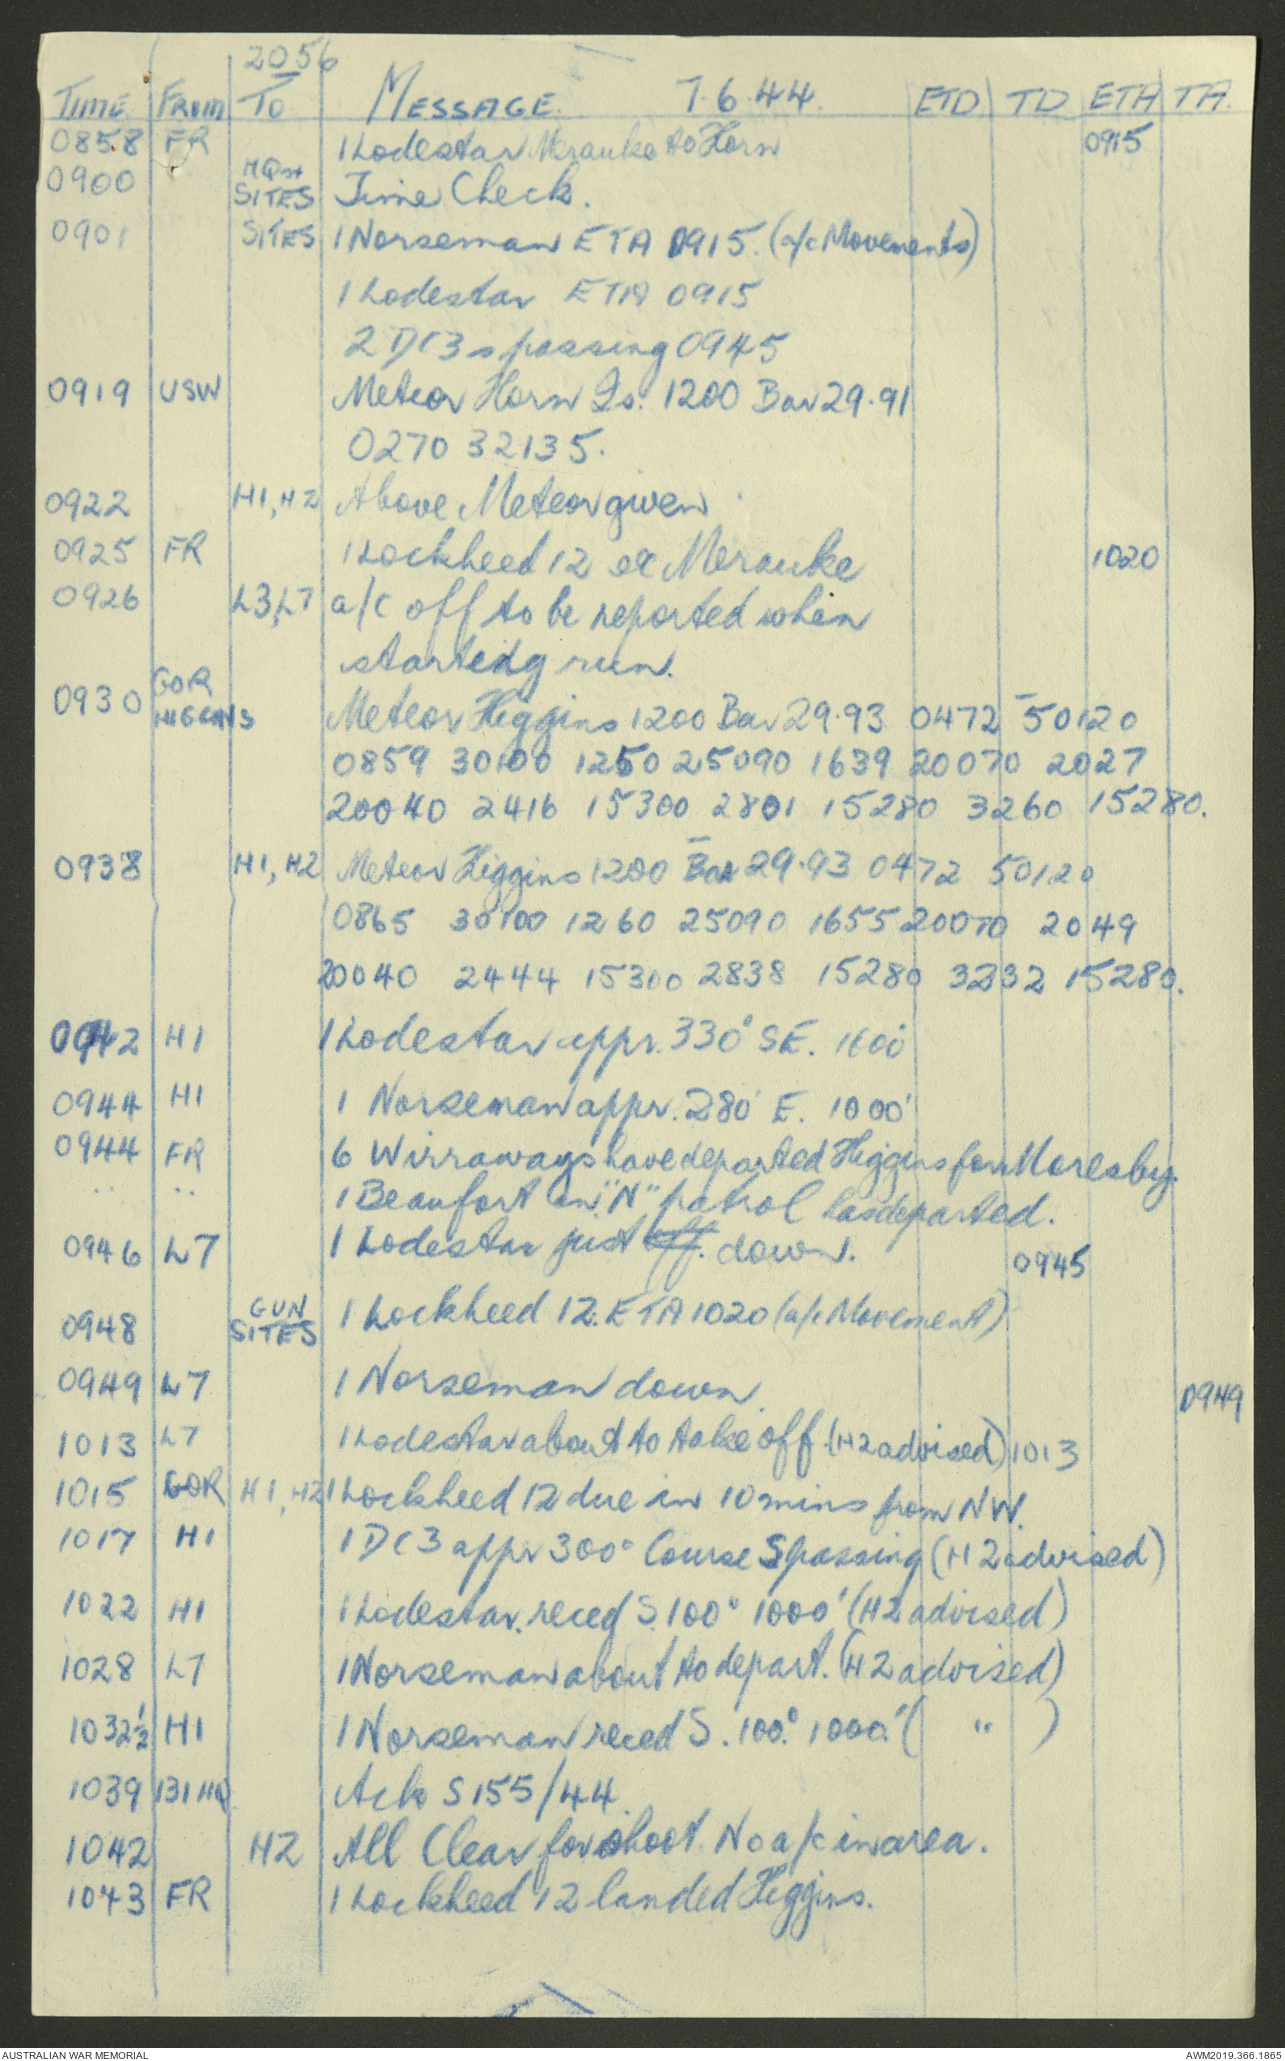 2056
TIME FROM TO MESSAGE 7.6.44. ETD TD ETA TA.
0858 FR 1 Lodestar Merauke to Horn 0915
0900 SITES Time Check.
0901 SITES 1 Norseman ETA 0915. (a/c Movements)
1 Lodestar ETA 0915
2 DC3s passing 0945
0919 USW Meteor Horn Is. 1200 Bar 29.91
0270 32135.
0922 H1, H2 Above Meteor given
0925 FR 1 Lockheed 12 ex Merauke 1020
0926 L3, L7 a/c off to be reported when
starting run.
0930 GOR
HIGGINS Meteor Higgins 1200 Bar 29.93 0472 50120
0859 30100 1250 25090 1639 20070 2027
20040 2416 15300 2801 15280 3260 15280.
0938 H1, H2 Meteor Higgins 1200 Bar 29.93 0472 50120
0865 30100 1260 25090 1655 20070 2049
20040 2444 15300 2838 15280 3232 15280.
0942 H1 1 Lodestar appr. 330° SE. 1600'
0944 H1 1 Norseman appr. 280° E. 1000'
0944 FR 6 Wirraways have departed Higgins for Moresby.
.. .. 1 Beaufort on "N" patrol has departed.
0946 L7 1 Lodestar just off. down. 0945
0948 GUN
SITES 1 Lockheed 12. ETA 1020 (a/c Movement)
0949 L7 1 Norseman down. 0949
1013 L7 1 Lodestar about to take off. (H2 advised) 1013
1015 GOR H1, H2 1 Lockheed 12 due in 10 mins from NW.
1017 H1 1 DC3 appr 300° Course S passing (H2 advised)
1022 H1 1 Lodestar reced S. 100° 1000' (H2 advised)
1028 L7 1 Norseman about to depart. (H2 advised)
1032½ H1 1 Norseman reced S. 100° 1000' ( " )
1039 131 HQ Ack S155/44.
1042 H2 All Clear for shoot. No a/c in area.
1043 FR 1 Lockheed 12 landed Higgins.
AUSTRALIAN WAR MEMORIAL AWM2019.366.1865